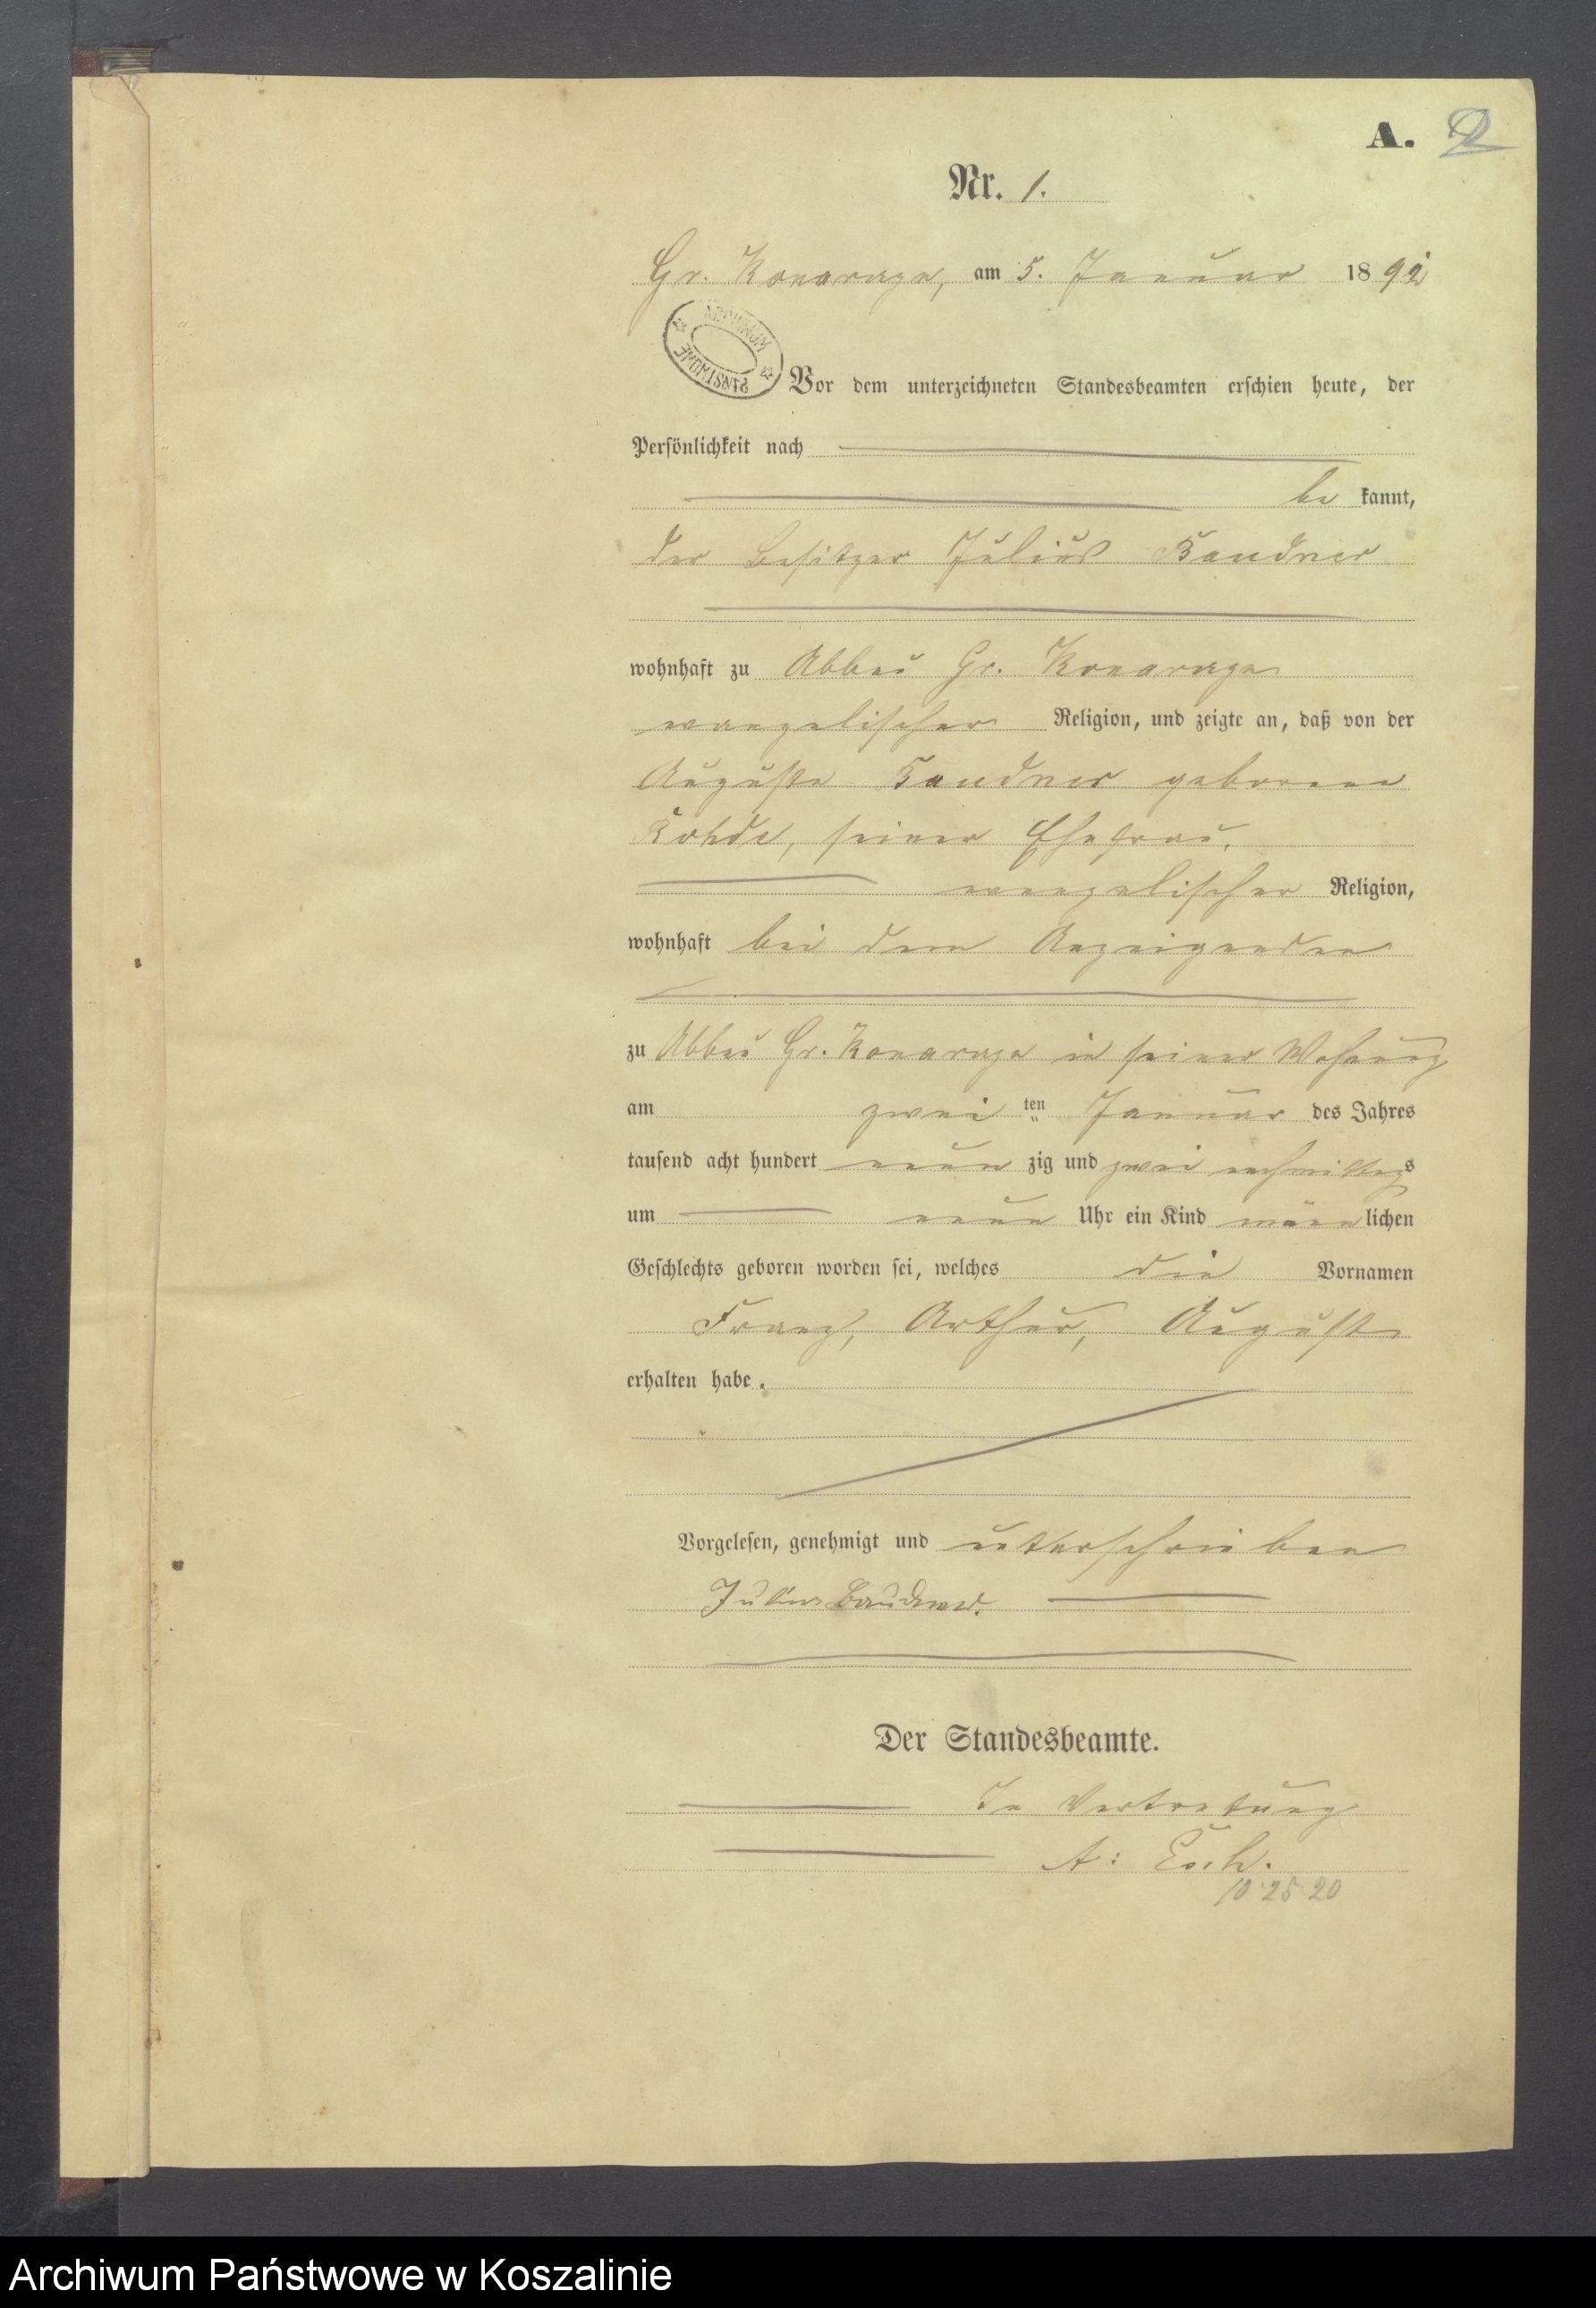 A. 2
Nr. 1.
Gr. Konarzyn, am 5. Januar 1892
ARCHIWUM PAŃSTWOWE
Vor dem unterzeichneten Standesbeamten erschien heute, der
Persönlichkeit nach
be kannt,
der Besitzer Julius
wohnhaft zu Abbau Gr. Konarzyn
evangelischer Religion, und zeigte an, daß von der
Auguste geborene
Rohde, seiner Ehefrau,
evangelischer Religion,
wohnhaft bei dem Anzeigenden
zu Abbau Gr. Konarzyn in seiner Wohnung
am zwei ten Januar des Jahres
tausend acht hundert neun zig und zwei nachmittags
um neun Uhr ein Kind männlichen
Geschlechts geboren worden sei, welches die Vornamen
Franz, Arthur, August
erhalten habe.
Vorgelesen, genehmigt und unterschrieben
Julius
Der Standesbeamte.
In Vertretung
A:
10 25 20
Archiwum Państwowe w Koszalinie